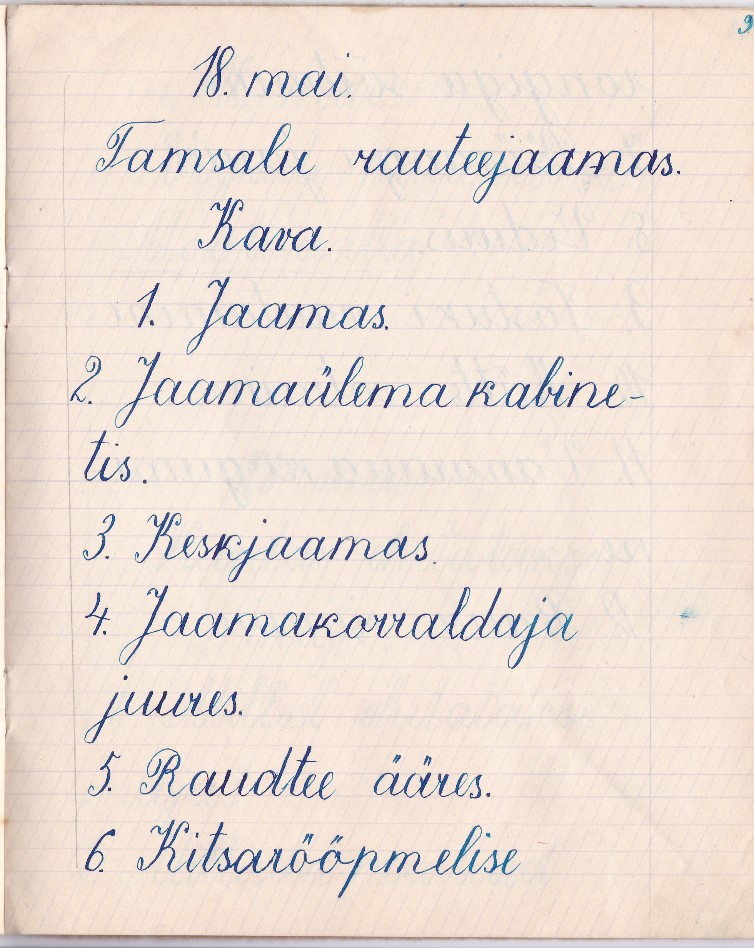 9
18. mai.
Tamsalu rauteejaamas.
Kava.
1. Jaamas.
2. Jaamaülema kabine-
tis.
3. Keskjaamas.
4. Jaamakorraldaja
juures.
5. Raudtee ääres.
6. Kitsarööpmelise